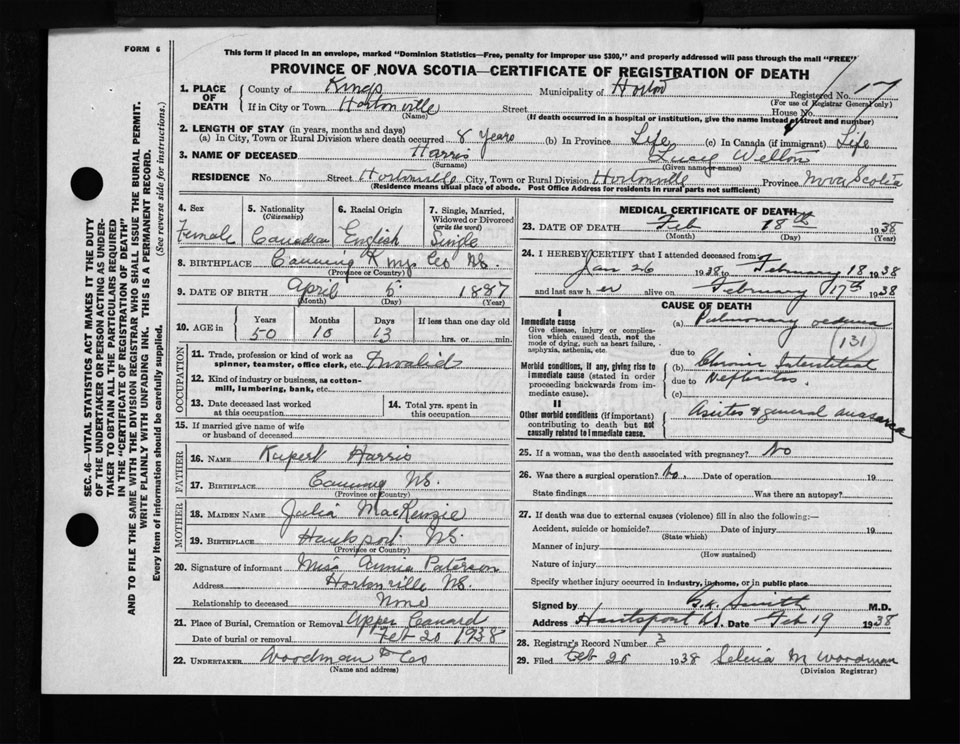 FORM 6
This form if placed in an envelope, marked "Dominion Statistics—Free, penalty for improper use $300," and properly addressed will pass through the mail "FREE"
PROVINCE OF NOVA SCOTIA—CERTIFICATE OF REGISTRATION OF DEATH
SEC. 46—VITAL STATISTICS ACT MAKES IT THE DUTY
OF THE UNDERTAKER OR PERSON ACTING AS UNDER-
TAKER TO OBTAIN ALL THE PARTICULARS REQUIRED
IN THE "CERTIFICATE OF REGISTRATION OF DEATH"
AND TO FILE THE SAME WITH THE DIVISION REGISTRAR WHO SHALL ISSUE THE BURIAL PERMIT.
WRITE PLAINLY WITH UNFADING INK. THIS IS A PERMANENT RECORD.
Every item of information should be carefully supplied. (See reverse side for instructions.)
1. PLACE OF DEATH County of Kings Municipality of Horton Registered No. 17
(For use of Registrar General only)
If in City or Town Hortonville Street House No.
(Name) (If death occurred in a hospital or institution, give the name instead of street and number)
2. LENGTH OF STAY (in years, months and days)
(a) In City, Town or Rural Division where death occurred 8 years (b) In Province Life (c) In Canada (if immigrant) Life
3. NAME OF DECEASED Harris Lucy Welton
(Surname) (Given name or names)
RESIDENCE No. Street Hortonville City, Town or Rural Division Hortonville Province Nova Scotia
(Residence means usual place of abode. Post Office Address for residents in rural parts not sufficient)
4. Sex Female
5. Nationality (Citizenship) Canadian
6. Racial Origin English
7. Single, Married, Widowed or Divorced (write the word) Single
8. BIRTHPLACE Canning Kings Co NS.
(Province or Country)
9. DATE OF BIRTH April 5 1887
(Month) (Day) (Year)
10. AGE in Years Months Days If less than one day old
50 10 13 hrs. or min.
OCCUPATION
11. Trade, profession or kind of work as spinner, teamster, office clerk, etc. Invalid
12. Kind of industry or business, as cotton-mill, lumbering, bank, etc.
13. Date deceased last worked at this occupation
14. Total yrs. spent in this occupation
15. If married give name of wife or husband of deceased
FATHER
16. NAME Rupert Harris
17. BIRTHPLACE Canning NS.
(Province or Country)
MOTHER
18. MAIDEN NAME Julia MacKenzie
19. BIRTHPLACE Hantsport NS.
(Province or Country)
20. Signature of informant Miss Annie Paterson
Address Hortonville NS.
Relationship to deceased None
21. Place of Burial, Cremation or Removal Upper Canard
Date of burial or removal Feb 20 1938
22. UNDERTAKER Woodman & Co
(Name and address)
MEDICAL CERTIFICATE OF DEATH
23. DATE OF DEATH Feb 18th 1938
(Month) (Day) (Year)
24. I HEREBY CERTIFY that I attended deceased from
Jan 26 1938 to February 18 1938
and last saw her alive on February 17th 1938
CAUSE OF DEATH
I
Immediate cause
Give disease, injury or complication which caused death, not the mode of dying, such as heart failure, asphyxia, asthenia, etc.
(a) Pulmonary oedema
131
due to
Morbid conditions, if any, giving rise to immediate cause (stated in order proceeding backwards from immediate cause).
(b) Chronic Interstitial
due to Nephritis.
(c)
II
Other morbid conditions (if important) contributing to death but not causally related to immediate cause.
Ascites & general anasarca
25. If a woman, was the death associated with pregnancy? No
26. Was there a surgical operation? No. Date of operation 19
State findings Was there an autopsy?
27. If death was due to external causes (violence) fill in also the following:—
Accident, suicide or homicide? Date of injury 19
(State which)
Manner of injury
(How sustained)
Nature of injury
Specify whether injury occurred in industry, in home, or in public place
Signed by Smith M.D.
Address Hantsport N.S. Date Feb 19 1938
28. Registrar's Record Number 3
29. Filed Feb 25 1938 Selina M Woodman
(Division Registrar)